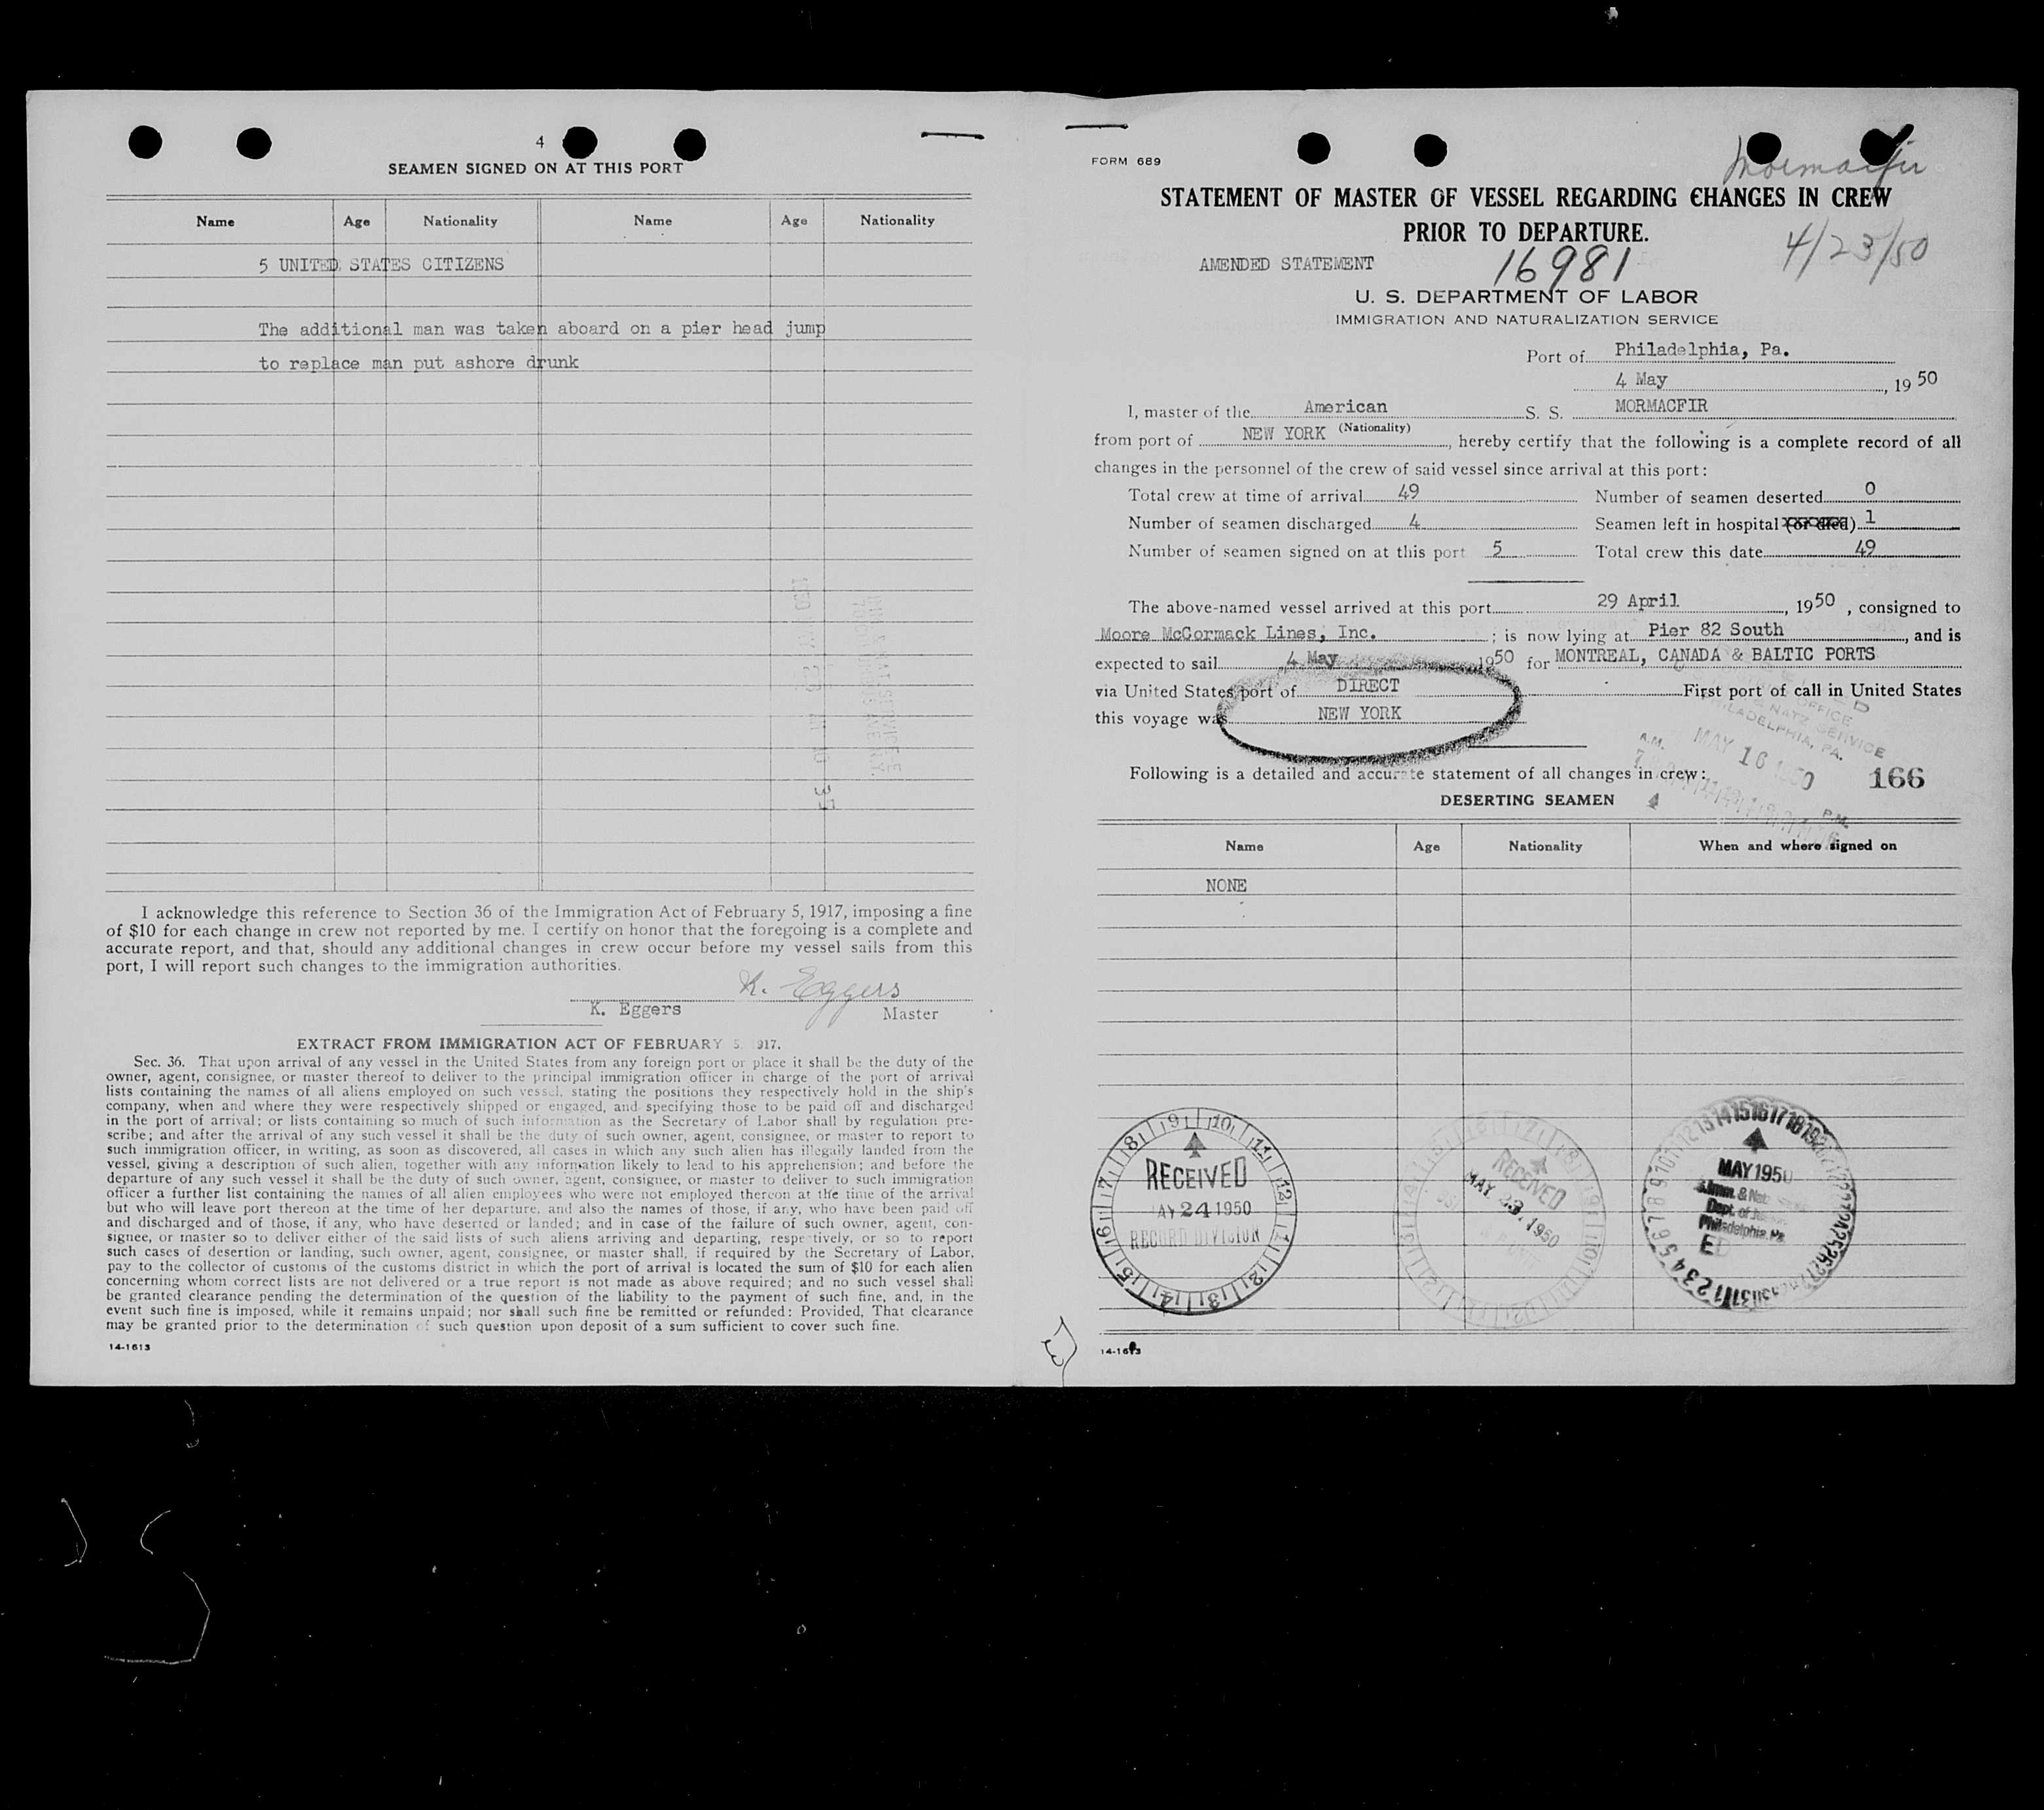 4
SEAMEN SIGNED ON AT THIS PORT
Name Age Nationality Name Age Nationality
5 UNITED STATES CITIZENS
The additional man was taken aboard on a pier head jump
to replace man put ashore drunk
I acknowledge this reference to Section 36 of the Immigration Act of February 5, 1917, imposing a fine
of $10 for each change in crew not reported by me. I certify on honor that the foregoing is a complete and
accurate report, and that, should any additional changes in crew occur before my vessel sails from this
port, I will report such changes to the immigration authorities.
K. Eggers
K. Eggers Master
EXTRACT FROM IMMIGRATION ACT OF FEBRUARY 5, 917.
Sec. 36. That upon arrival of any vessel in the United States from any foreign port or place it shall be the duty of the
owner, agent, consignee, or master thereof to deliver to the principal immigration officer in charge of the port of arrival
lists containing the names of all aliens employed on such vessel, stating the positions they respectively hold in the ship's
company, when and where they were respectively shipped or engaged, and specifying those to be paid off and discharged
in the port of arrival; or lists containing so much of such information as the Secretary of Labor shall by regulation pre-
scribe; and after the arrival of any such vessel it shall be the duty of such owner, agent, consignee, or master to report to
such immigration officer, in writing, as soon as discovered, all cases in which any such alien has illegally landed from the
vessel, giving a description of such alien, together with any information likely to lead to his apprehension; and before the
departure of any such vessel it shall be the duty of such owner, agent, consignee, or master to deliver to such immigration
officer a further list containing the names of all alien employees who were not employed thereon at the time of the arrival
but who will leave port thereon at the time of her departure, and also the names of those, if any, who have been paid off
and discharged and of those, if any, who have deserted or landed; and in case of the failure of such owner, agent, con-
signee, or master so to deliver either of the said lists of such aliens arriving and departing, respectively, or so to report
such cases of desertion or landing, such owner, agent, consignee, or master shall, if required by the Secretary of Labor,
pay to the collector of customs of the customs district in which the port of arrival is located the sum of $10 for each alien
concerning whom correct lists are not delivered or a true report is not made as above required; and no such vessel shall
be granted clearance pending the determination of the question of the liability to the payment of such fine, and, in the
event such fine is imposed, while it remains unpaid; nor shall such fine be remitted or refunded: Provided, That clearance
may be granted prior to the determination of such question upon deposit of a sum sufficient to cover such fine.
14-1613
FORM 689
Mormacfir
STATEMENT OF MASTER OF VESSEL REGARDING CHANGES IN CREW
PRIOR TO DEPARTURE.
4/23/50
AMENDED STATEMENT 16981
U. S. DEPARTMENT OF LABOR
IMMIGRATION AND NATURALIZATION SERVICE
Port of Philadelphia, Pa.
4 May, 1950
I, master of the American S. S. MORMACFIR
(Nationality)
from port of NEW YORK, hereby certify that the following is a complete record of all
changes in the personnel of the crew of said vessel since arrival at this port:
Total crew at time of arrival 49 Number of seamen deserted 0
Number of seamen discharged 4 Seamen left in hospital (or died) 1
Number of seamen signed on at this port 5 Total crew this date 49
The above-named vessel arrived at this port 29 April, 1950, consigned to
Moore McCormack Lines, Inc.; is now lying at Pier 82 South, and is
expected to sail 4 May 1950 for MONTREAL, CANADA & BALTIC PORTS
via United States port of DIRECT First port of call in United States
this voyage was NEW YORK
OFFICE
NATZ. SERVICE
PHILADELPHIA, PA.
A.M. MAY 16 1950
P.M.
166
Following is a detailed and accurate statement of all changes in crew:
DESERTING SEAMEN
Name Age Nationality When and where signed on
NONE
RECEIVED
AY 24 1950
RECORD DIVISION
RECEIVED
MAY 23 1950
MAY 1950
Imm. & Nat
Dept. of
Philadelphia, Pa.
14-1613